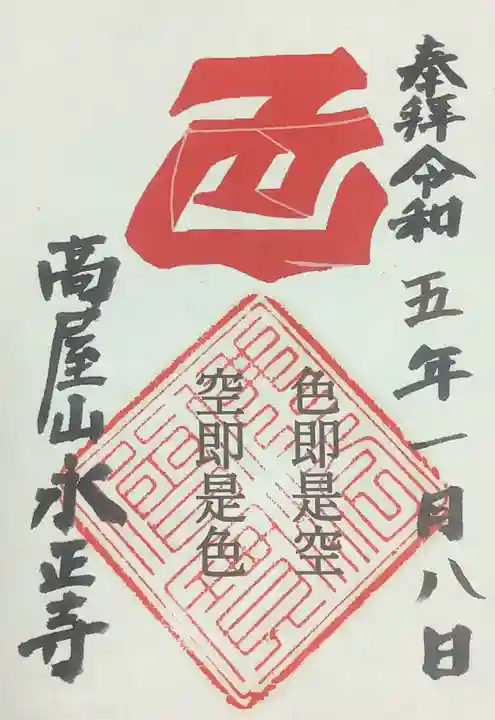 奉拝令和五年一月八日
色即是空
空即是色
高屋山永正寺